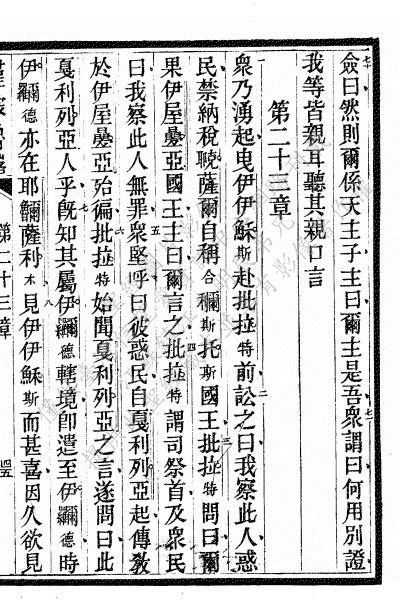 僉曰然則爾係天主子主曰爾主是吾衆謂曰何用別證
我等皆親耳聽其親口言
第二十三章
衆乃湧起曳伊伊穌斯赴批拉特前訟之曰我察此人惑
民禁納稅𥌒薩爾自稱合𥻫斯托斯國王批拉特問曰爾
果伊屋疊亞國王主曰爾言之批拉特謂司祭首及衆民
曰我察此人無罪衆堅呼曰彼惑民自戛利列亞起傳敎
於伊屋疊亞殆徧批拉特始聞戛利列亞之言遂問曰此
戛利列亞人乎旣知其屬伊德轄境卽遣至伊德時
伊德亦在耶薩利木見伊伊穌斯而甚喜因久欲見
第二十三章